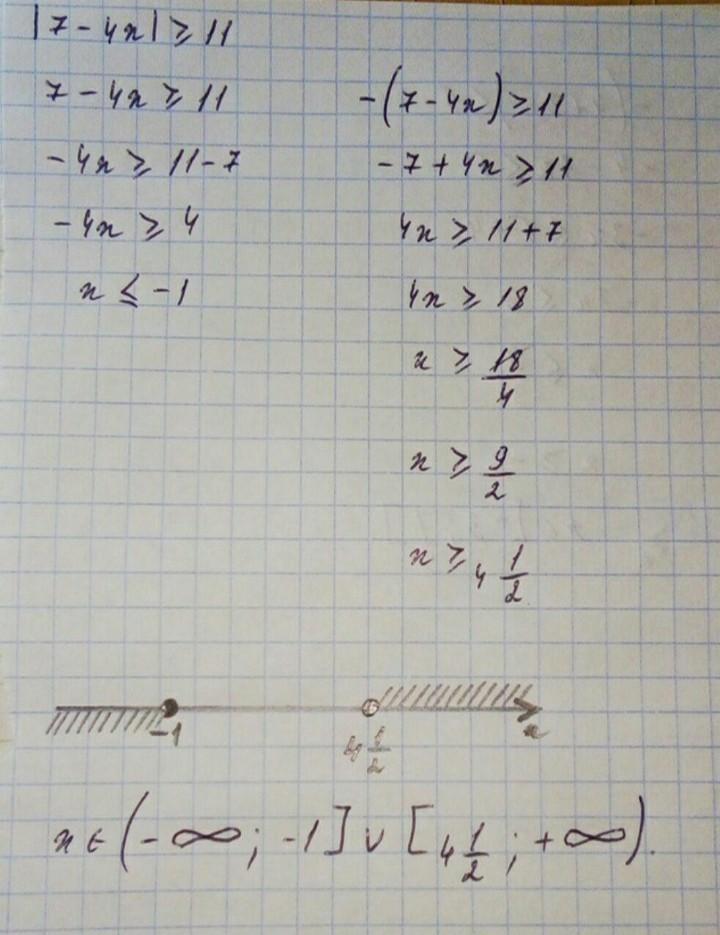 |7 - 4x| ≥ 11
7 - 4x ≥ 11
-4x ≥ 11 - 7
-4x ≥ 4
x ≤ -1
-(7 - 4x) ≥ 11
-7 + 4x ≥ 11
4x ≥ 11 + 7
4x ≥ 18
x ≥ 18/4
x ≥ 9/2
x ≥ 4 1/2
-1 4 1/2 x
x ∈ (-∞; -1] ∪ [4 1/2; +∞).